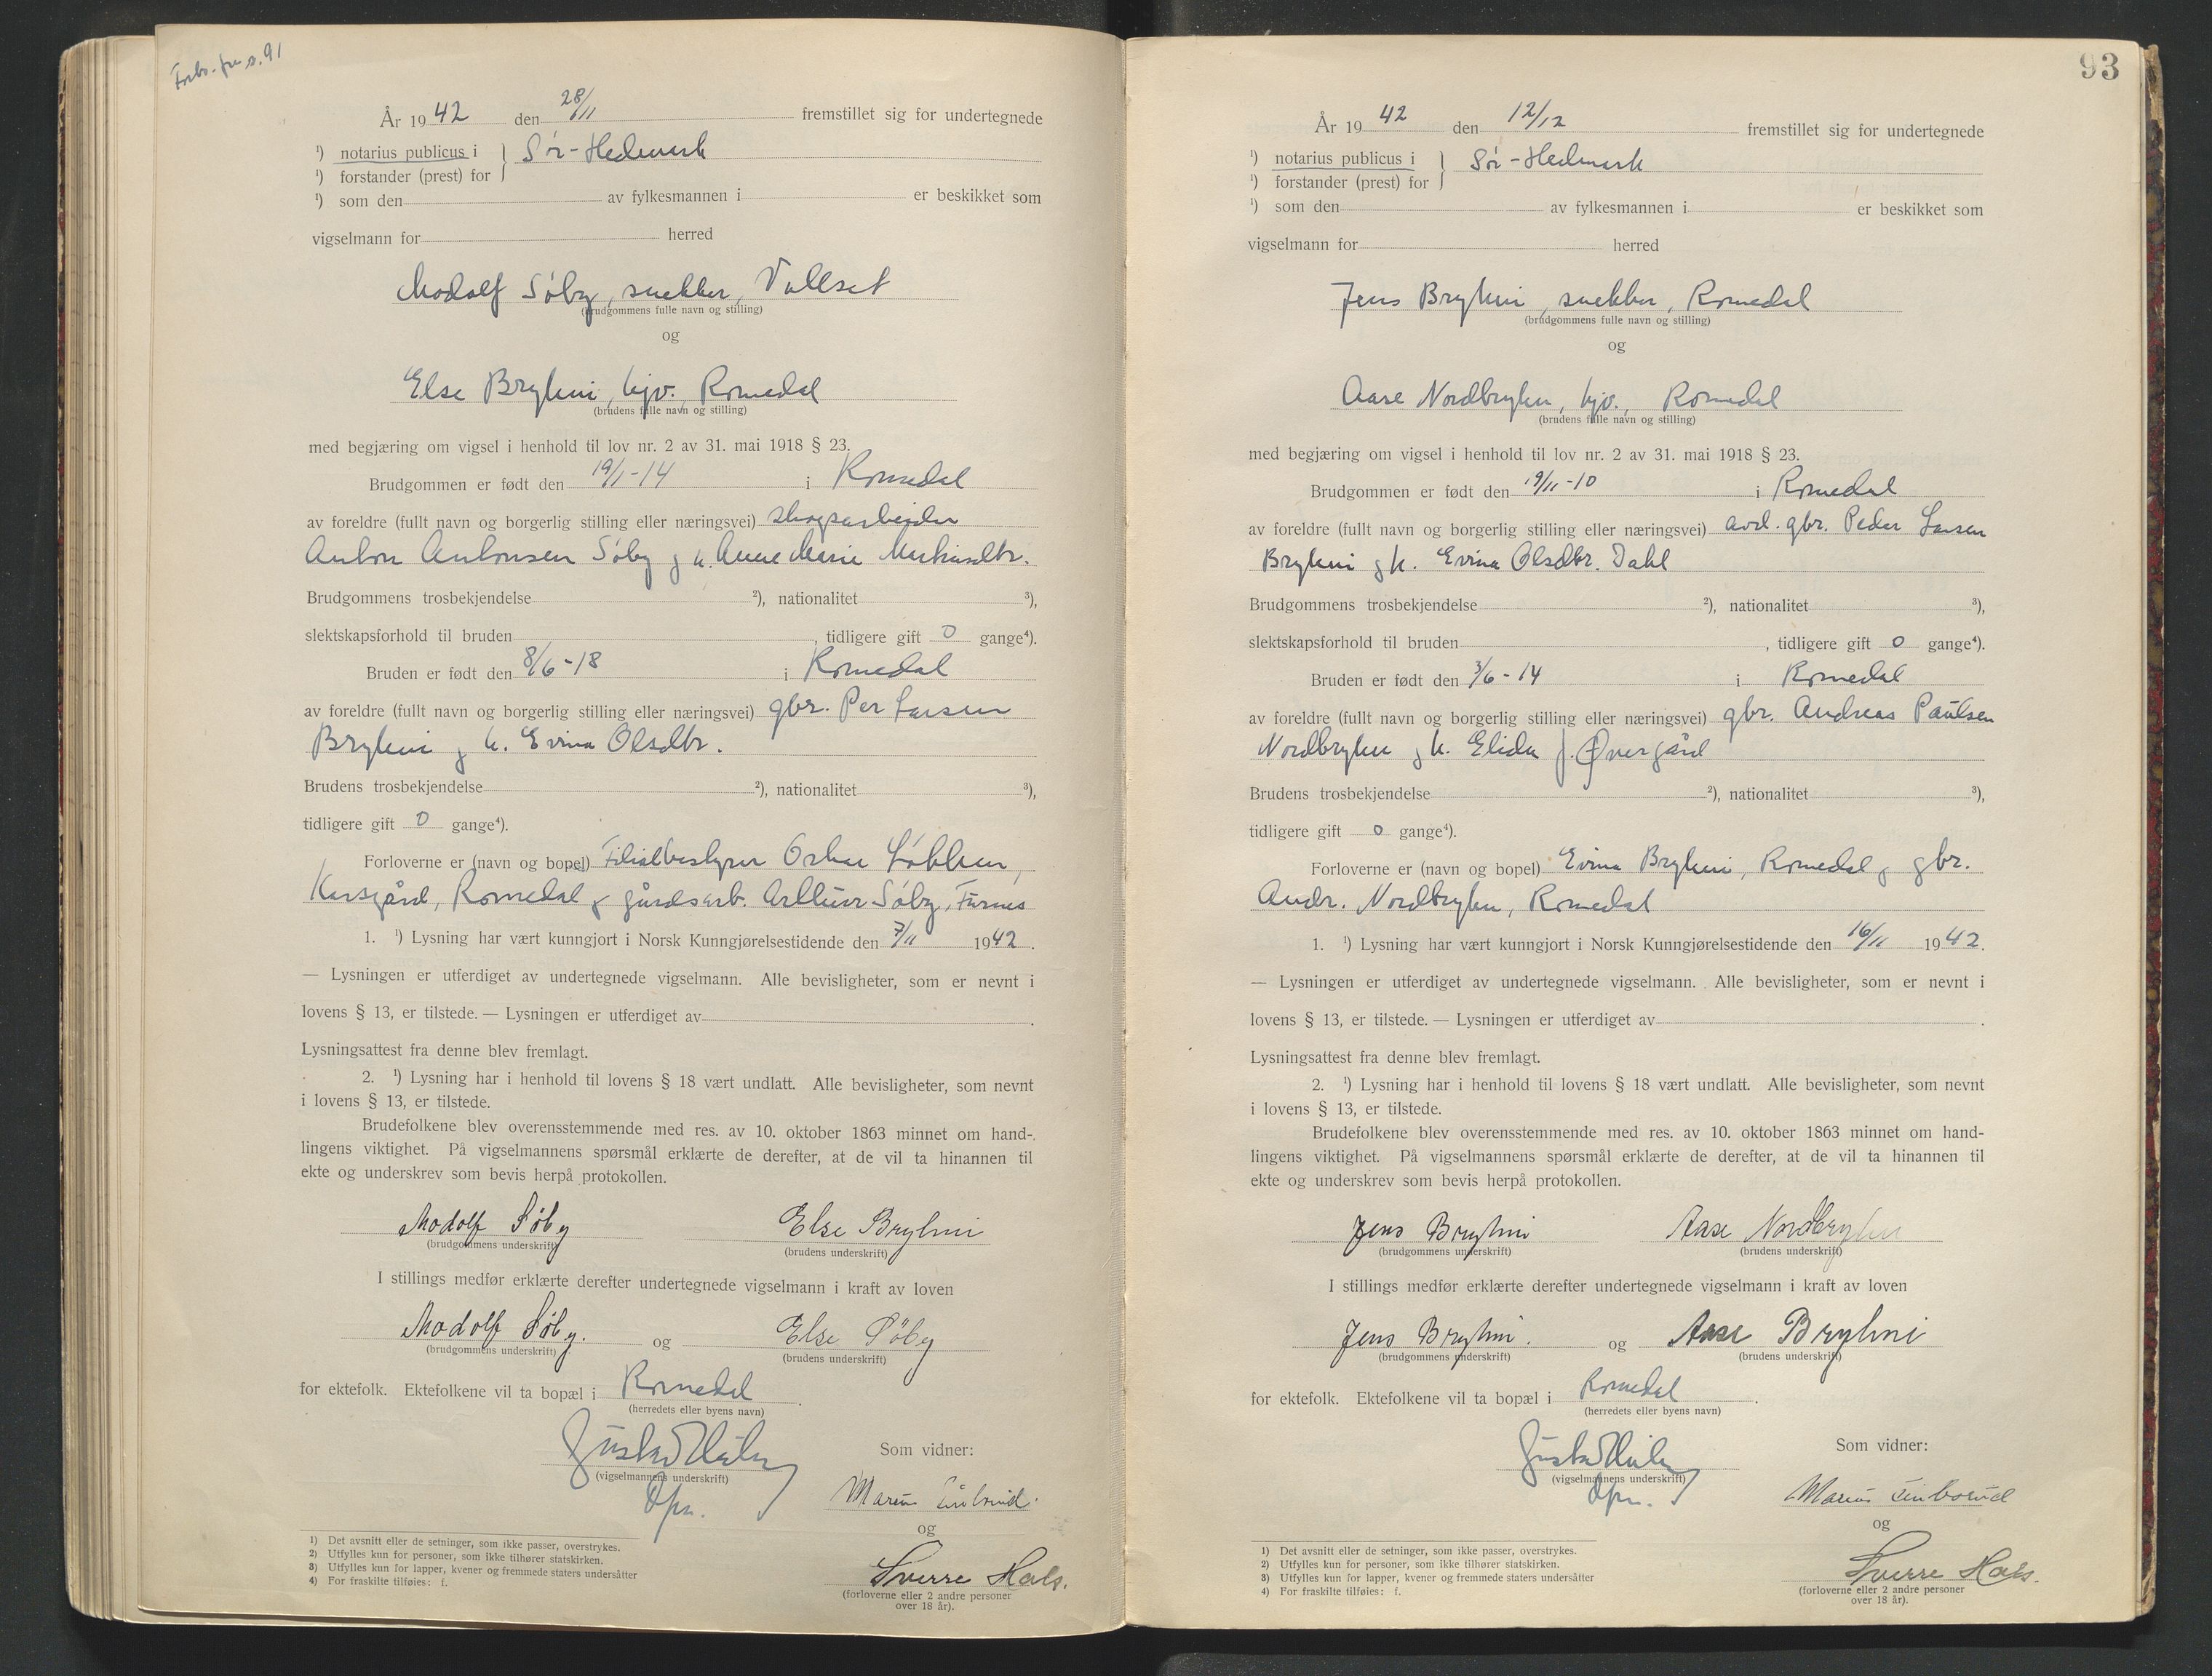 Forts. fra s. 91
År 1942 den 28/11 fremstillet sig for undertegnede
¹) notarius publicus i } Sør-Hedmark
¹) forstander (prest) for
¹) som den av fylkesmannen i er beskikket som
vigselmann for herred
Modolf Søby, snekker, Vallset
(brudgommens fulle navn og stilling)
og
Else Bryhni, hjv. Romedal
(brudens fulle navn og stilling)
med begjæring om vigsel i henhold til lov nr. 2 av 31. mai 1918 § 23.
Brudgommen er født den 19/1-14 i Romedal
av foreldre (fullt navn og borgerlig stilling eller næringsvei) skogsarbeider
Anton Antonsen Søby og h. Anne Marie
Brudgommens trosbekjendelse ²), nationalitet ³),
slektskapsforhold til bruden , tidligere gift 0 gange⁴).
Bruden er født den 8/6-18 i Romedal
av foreldre (fullt navn og borgerlig stilling eller næringsvei) gbr. Per Larsen
Bryhni og h. Evina Olsdtr.
Brudens trosbekjendelse ²), nationalitet ³),
tidligere gift 0 gange⁴).
Forloverne er (navn og bopel) Filialbestyrer Oskar
Romedal og gårdsarb. Arthur Søby, Furnes
1. ¹) Lysning har vært kunngjort i Norsk Kunngjørelsestidende den 7/11 1942.
— Lysningen er utferdiget av undertegnede vigselmann. Alle bevisligheter, som er nevnt i
lovens § 13, er tilstede. — Lysningen er utferdiget av .
Lysningsattest fra denne blev fremlagt.
2. ¹) Lysning har i henhold til lovens § 18 vært undlatt. Alle bevisligheter, som nevnt
i lovens § 13, er tilstede.
Brudefolkene blev overensstemmende med res. av 10. oktober 1863 minnet om hand-
lingens viktighet. På vigselmannens spørsmål erklærte de derefter, at de vil ta hinannen til
ekte og underskrev som bevis herpå protokollen.
Modolf Søby Else Bryhni
(brudgommens underskrift) (brudens underskrift)
I stillings medfør erklærte derefter undertegnede vigselmann i kraft av loven
Modolf Søby. og Else Søby
(brudgommens underskrift) (brudens underskrift)
for ektefolk. Ektefolkene vil ta bopæl i Romedal .
(herredets eller byens navn)
(vigselmannens underskrift)
Som vidner:
og
Sverre Hals.
(forloverne eller 2 andre personer
over 18 år).
1) Det avsnitt eller de setninger, som ikke passer, overstrykes.
2) Utfylles kun for personer, som ikke tilhører statskirken.
3) Utfylles kun for lapper, kvener og fremmede staters undersåtter
4) For fraskilte tilføies: f.
93
År 1942 den 12/12 fremstillet sig for undertegnede
¹) notarius publicus i } Sør-Hedmark
¹) forstander (prest) for
¹) som den av fylkesmannen i er beskikket som
vigselmann for herred
Jens Bryhni, snekker, Romedal
(brudgommens fulle navn og stilling)
og
Aase Nordbryhn, hjv., Romedal
(brudens fulle navn og stilling)
med begjæring om vigsel i henhold til lov nr. 2 av 31. mai 1918 § 23.
Brudgommen er født den 19/11-10 i Romedal
av foreldre (fullt navn og borgerlig stilling eller næringsvei) avd. gbr. Peder Larsen
Bryhni og h. Evina Olsdtr. Dahl
Brudgommens trosbekjendelse ²), nationalitet ³),
slektskapsforhold til bruden , tidligere gift 0 gange⁴).
Bruden er født den 3/6-14 i Romedal
av foreldre (fullt navn og borgerlig stilling eller næringsvei) gbr. Andreas Paulsen
Nordbryhn og h. Elida f. Øvergård
Brudens trosbekjendelse ²), nationalitet ³),
tidligere gift 0 gange⁴).
Forloverne er (navn og bopel) Evina Bryhni, Romedal og gbr.
Andr. Nordbryhn, Romedal
1. ¹) Lysning har vært kunngjort i Norsk Kunngjørelsestidende den 16/11 1942.
— Lysningen er utferdiget av undertegnede vigselmann. Alle bevisligheter, som er nevnt i
lovens § 13, er tilstede. — Lysningen er utferdiget av .
Lysningsattest fra denne blev fremlagt.
2. ¹) Lysning har i henhold til lovens § 18 vært undlatt. Alle bevisligheter, som nevnt
i lovens § 13, er tilstede.
Brudefolkene blev overensstemmende med res. av 10. oktober 1863 minnet om hand-
lingens viktighet. På vigselmannens spørsmål erklærte de derefter, at de vil ta hinannen til
ekte og underskrev som bevis herpå protokollen.
Jens Bryhni Aase Nordbryhn
(brudgommens underskrift) (brudens underskrift)
I stillings medfør erklærte derefter undertegnede vigselmann i kraft av loven
Jens Bryhni. og Aase Bryhni
(brudgommens underskrift) (brudens underskrift)
for ektefolk. Ektefolkene vil ta bopæl i Romedal .
(herredets eller byens navn)
(vigselmannens underskrift)
Som vidner:
og
Sverre Hals.
(forloverne eller 2 andre personer
over 18 år).
1) Det avsnitt eller de setninger, som ikke passer, overstrykes.
2) Utfylles kun for personer, som ikke tilhører statskirken.
3) Utfylles kun for lapper, kvener og fremmede staters undersåtter
4) For fraskilte tilføies: f.